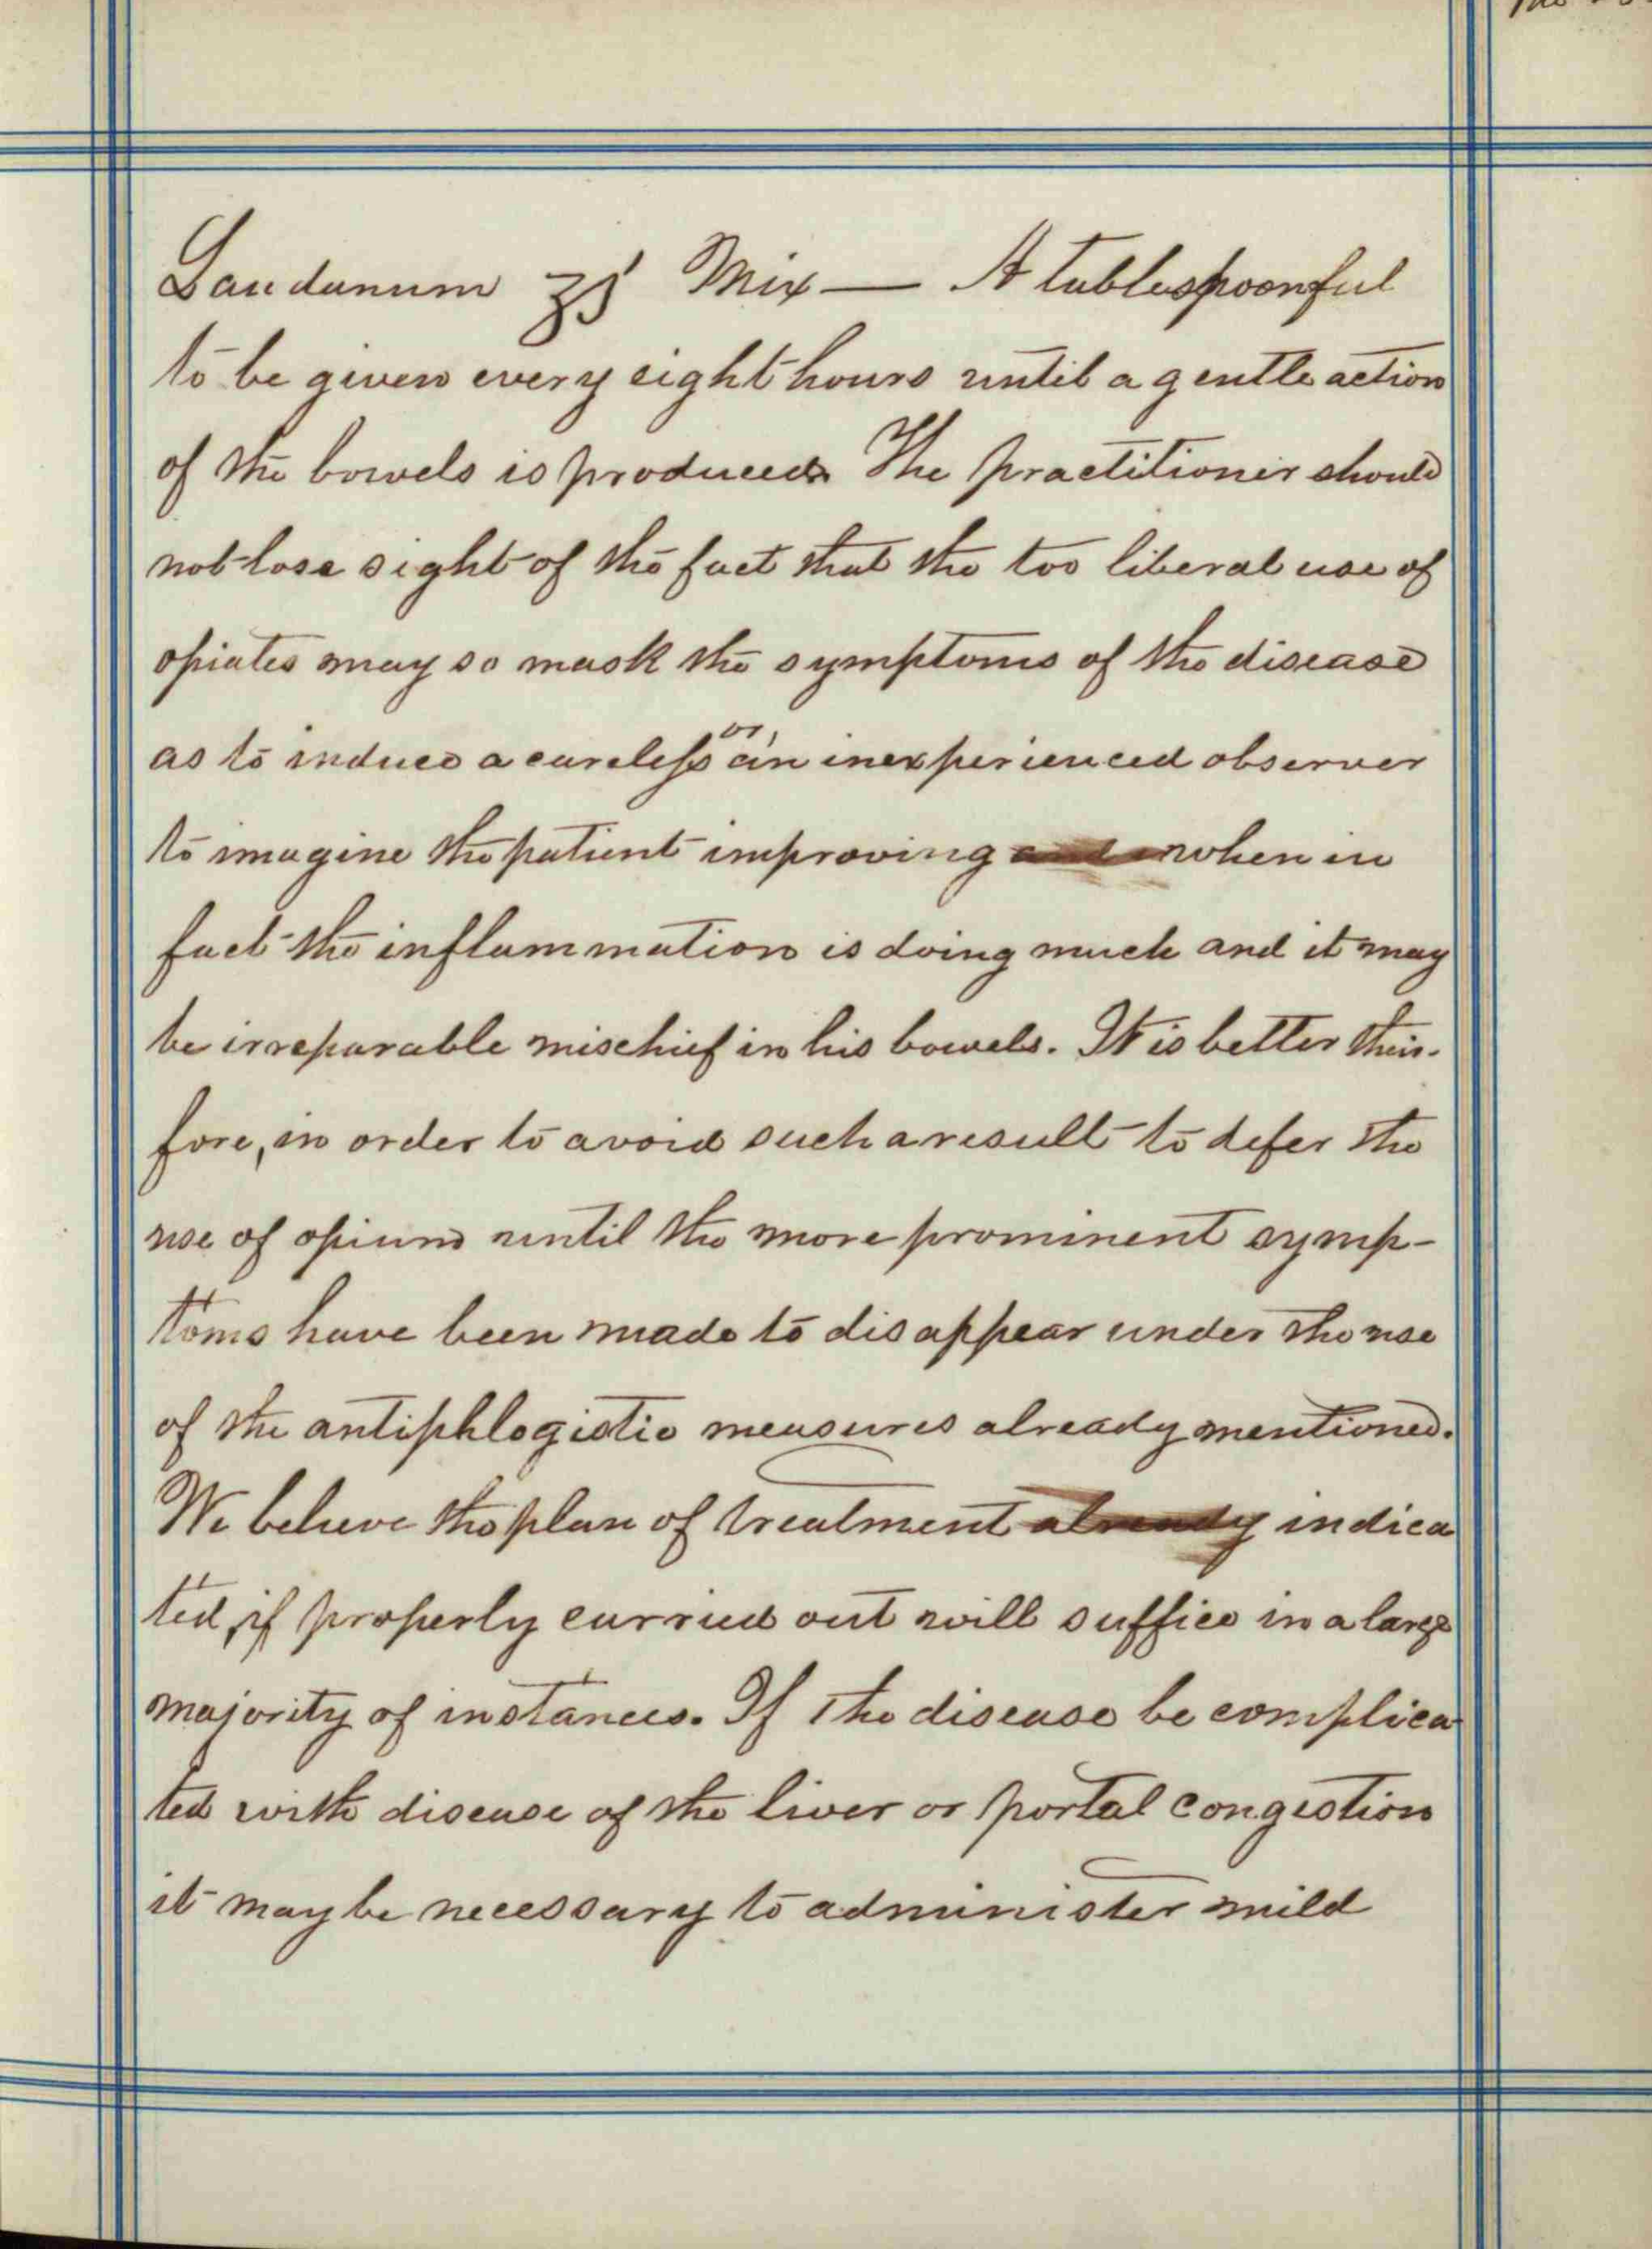 Laudanum ʒj Mix — A tablespoonful
to be given every eight hours until a gentle action
of the bowels is produced. The practitioner should
not lose sight of the fact that the too liberal use of
opiates may so mask the symptoms of the disease
as to induce a careless or, an inexperienced observer
to imagine the patient improving when in
fact the inflammation is doing much and it may
be irreparable mischief in his bowels. It is better there-
fore, in order to avoid such a result to defer the
use of opium until the more prominent symp-
toms have been made to disappear under the use
of the antiphlogistic measures already mentioned.
We believe the plan of treatment already indica
ted, if properly carried out will suffice in a large
majority of instances. If the disease be complica-
ted with disease of the liver or portal congestion
it may be necessary to administer mild